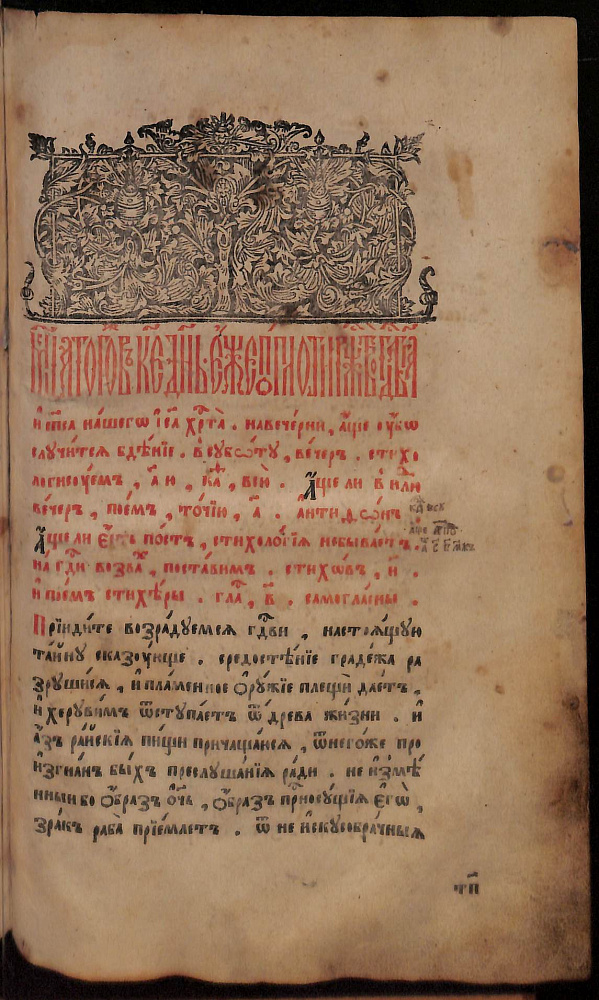 и҆ сп҃са на́шегѡ і҆с҃а хрⷭ҇та̀ . навече́рни , а҆́ще о у҆́бѡ
случи́тсѧ бдѣ́нїе . в̾суббѡ́ту , ве́черъ . стихо
логисѹ́емъ , а҃ ю , каⷴ , всю̀ . А҆́ще ли в̾ нⷣлю
ве́черъ , пое́мъ , то́чїю , а҃ . а҆нтїфѡ́нъ
А҆́ще ли є҆́сть по́стъ , стихоло́гїѧ небыва́етъ .
на̀ гдⷭ҇и возва́хъ , поста́вимъ . стихѡ́въ , и҃ .
и҆ пое́мъ стихѣ́ры . гла́с , в҃ . самогла́сны .
Прїиди́те возра́дуемсѧ гдⷭ҇ви , настоѧ́щую
та́йну сказѹ́юще . средостѣ́нїе градежа ра
зруши́сѧ , и҆ пла́менное ѻ҆рѹ́жїе плещѝ дае́тъ ,
и҆ херуви́мъ ѿступа́етъ ѿ дре́ва жи́зни . и҆
а҆́зъ ра́йскїѧ пи́щи причаща́юсѧ , ѿнего́же про
и҆згна́нъ бы́хъ преслуша́нїѧ ра́ди . не и҆змѣ́
нныи бо ѻ҆́браз ѻ҆́ч҃ь , ѻ҆́браз прⷭ҇носу́щїѧ є҆гѡ̀ ,
зра́къ раба̀ прїе́млетъ . ѿ не и҆скусобра́чныѧ
тп҃